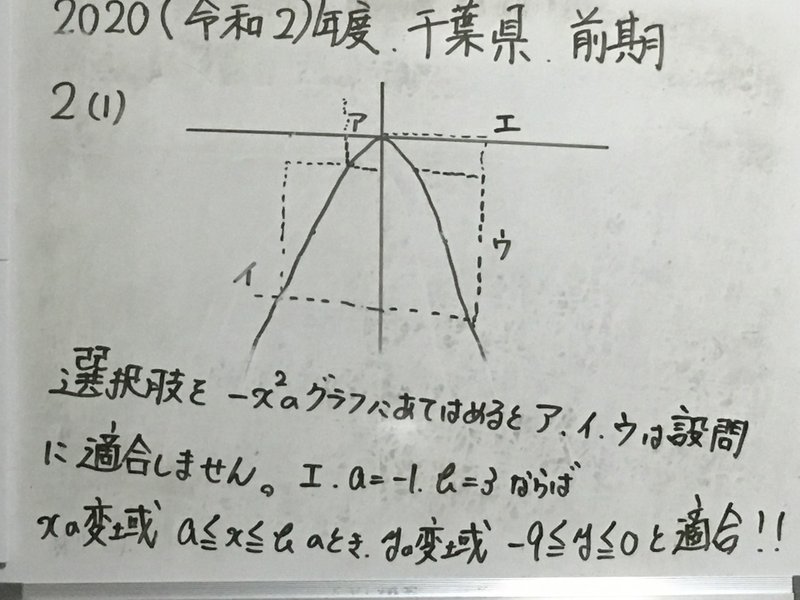 2020(令和2)年度.千葉県.前期
2(1)
ア
エ
ウ
イ
選択肢を -x²のグラフにあてはめるとア.イ.ウは設問
に適合しません。エ.a=-1.b=3ならば
xの変域 a≦x≦bのとき.yの変域 -9≦y≦0と適合!!